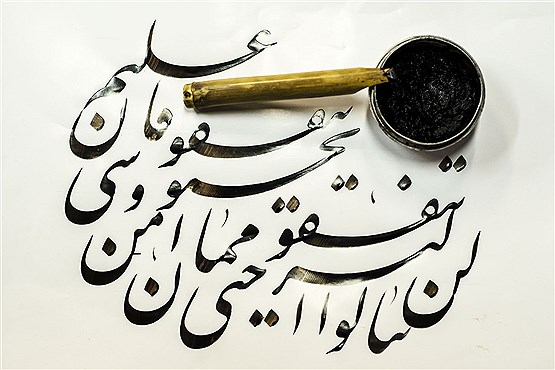 لن تنالوا البر حتی
تنفقوا مما تحبون
و تنفقوا من شی
فان علیم